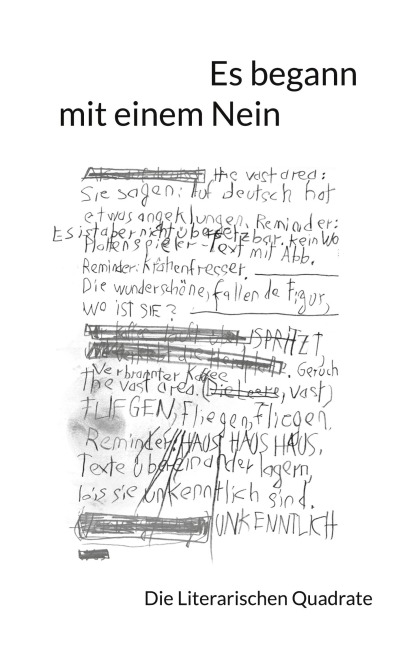 Es begann
mit einem Nein
the vast area:
Sie sagen: Auf deutsch hat
etwas angeklungen. Reminder:
Es ist aber nicht übersetzbar. kein Wo
Plattenspieler-Text mit Abb.
Reminder: Krähenfresser.
Die wunderschöne, fallende Figur,
WO IST SIE?
SPRITZT
Verbrannter Kaffee Geruch
The vast area. (Die Leere, Vast)
FLIEGEN, Fliegen, Fliegen.
Reminder: HAUS HAUS HAUS,
Texte übereinander lagern,
bis sie unkenntlich sind.
UNKENNTLICH
Die Literarischen Quadrate